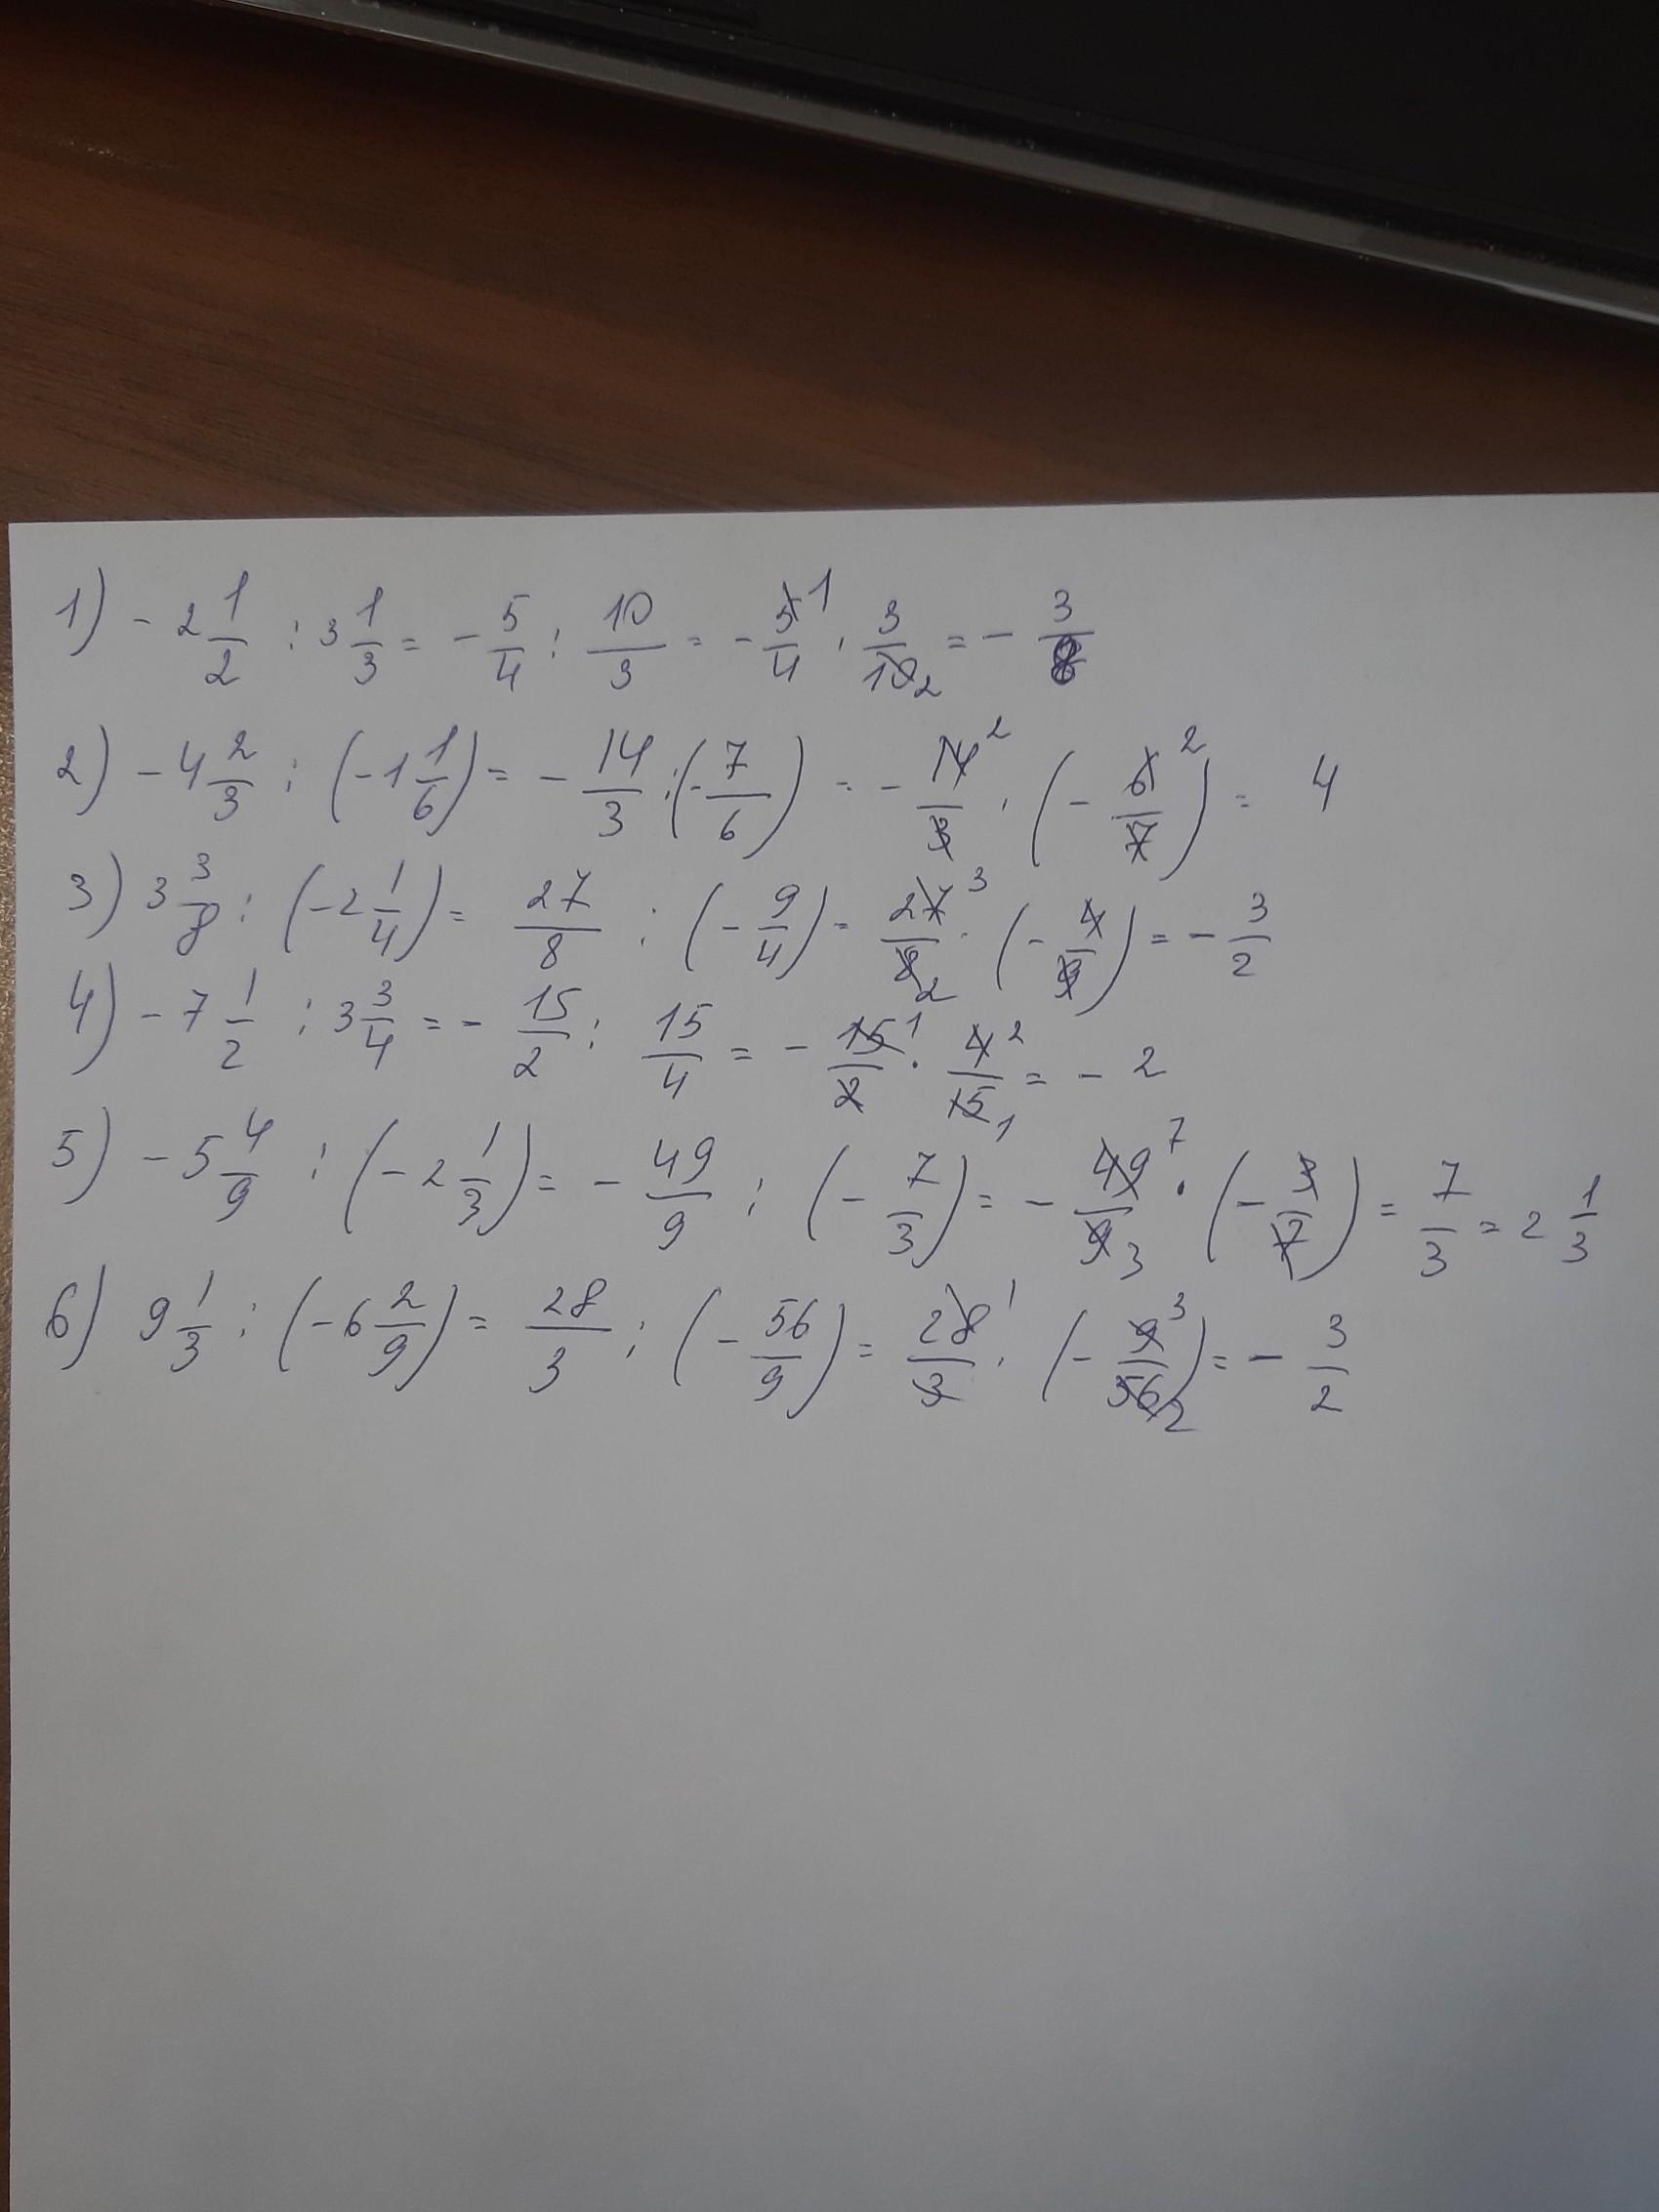 1) - 2 1/2 : 3 1/3 = - 5/4 : 10/3 = - 5/4 1 · 3/10 2 = - 3/8
2) - 4 2/3 : (-1 1/6) = - 14/3 : (- 7/6) = - 14/3 2 · (- 6/7 2) = 4
3) 3 3/8 : (-2 1/4) = 27/8 : (- 9/4) = 27/8 3 2 · (- 4/9) = - 3/2
4) - 7 1/2 : 3 3/4 = - 15/2 : 15/4 = - 15/2 1 · 4/15 2 1 = - 2
5) - 5 4/9 : (- 2 1/3) = - 49/9 : (- 7/3) = - 49/9 7 3 · (- 3/7) = 7/3 = 2 1/3
6) 9 1/3 : (-6 2/9) = 28/3 : (- 56/9) = 28/3 1 · (- 9/56 3 2) = - 3/2